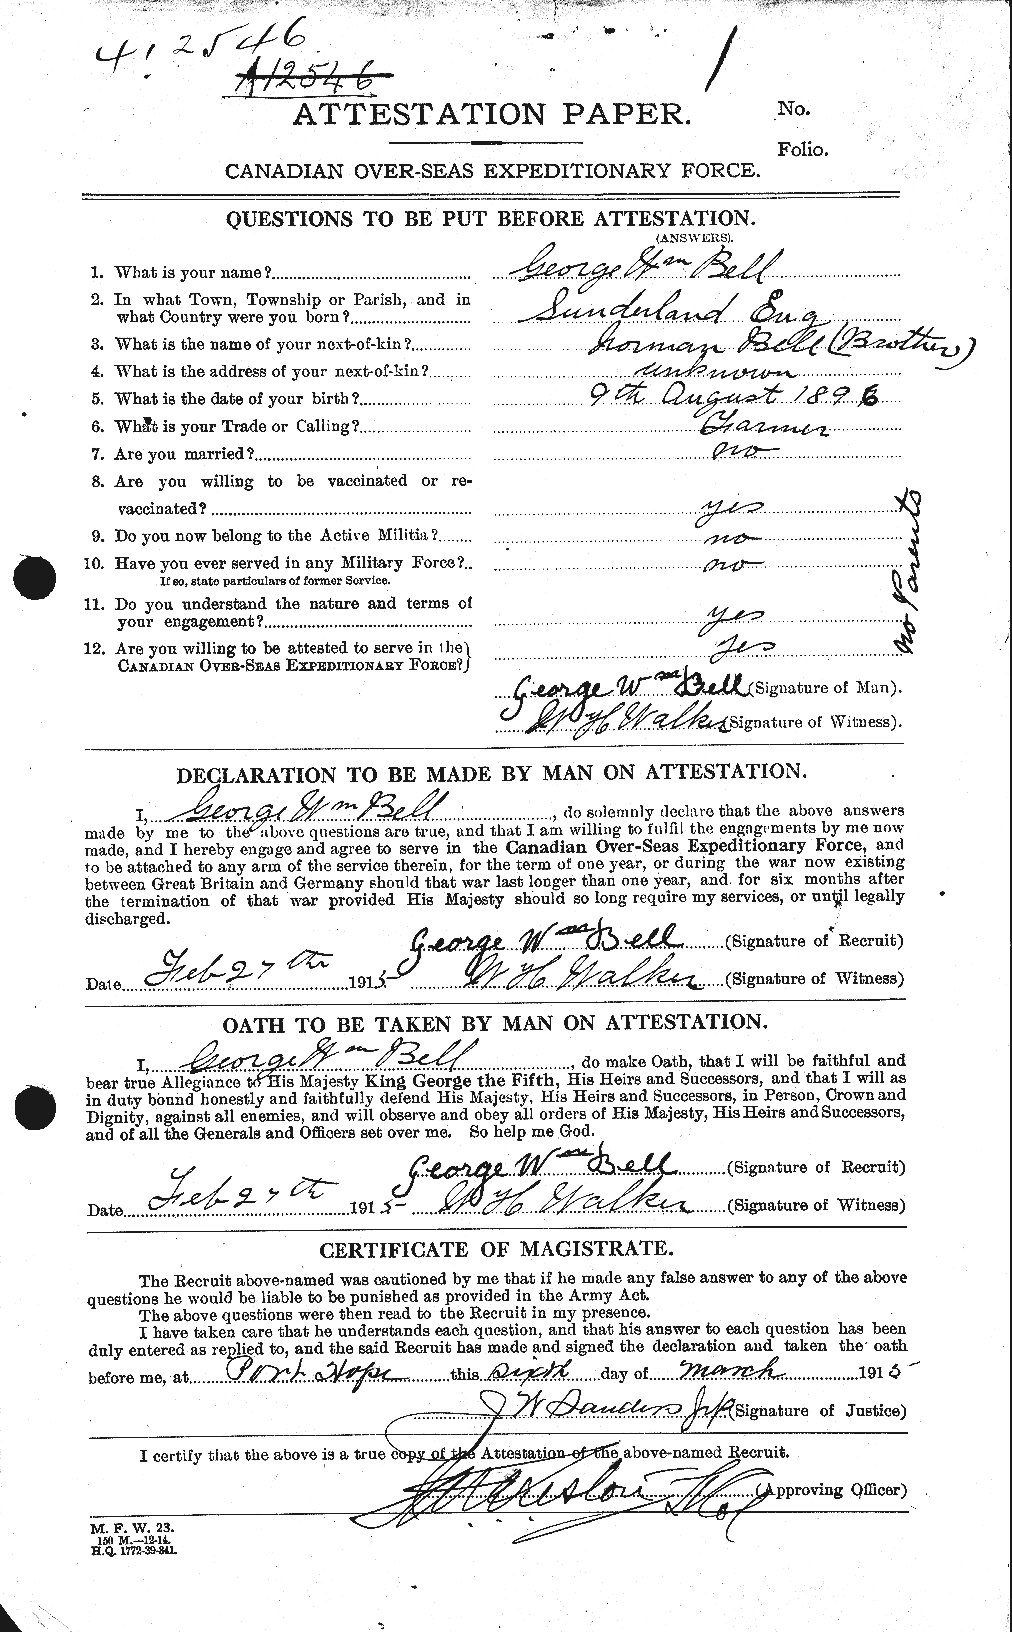 412546
A12546
1
ATTESTATION PAPER.
No.
Folio.
CANADIAN OVER-SEAS EXPEDITIONARY FORCE.
QUESTIONS TO BE PUT BEFORE ATTESTATION.
(ANSWERS).
1. What is your name? George Wm Bell
2. In what Town, Township or Parish, and in
what Country were you born? Sunderland Eng
3. What is the name of your next-of-kin? Norman Bell (Brother)
4. What is the address of your next-of-kin? unknown
5. What is the date of your birth? 9th August 1896
6. What is your Trade or Calling? Farmer
7. Are you married? no
8. Are you willing to be vaccinated or re-
vaccinated? yes
9. Do you now belong to the Active Militia? no
10. Have you ever served in any Military Force? no
If so, state particulars of former Service.
11. Do you understand the nature and terms of
your engagement? yes
12. Are you willing to be attested to serve in the
CANADIAN OVER-SEAS EXPEDITIONARY FORCE? yes
no Parents
George Wm Bell (Signature of Man).
W H Walker (Signature of Witness).
DECLARATION TO BE MADE BY MAN ON ATTESTATION.
I, George Wm Bell, do solemnly declare that the above answers
made by me to the above questions are true, and that I am willing to fulfil the engagements by me now
made, and I hereby engage and agree to serve in the Canadian Over-Seas Expeditionary Force, and
to be attached to any arm of the service therein, for the term of one year, or during the war now existing
between Great Britain and Germany should that war last longer than one year, and for six months after
the termination of that war provided His Majesty should so long require my services, or until legally
discharged.
George Wm Bell (Signature of Recruit)
Date Feb 27th 1915 W H Walker (Signature of Witness)
OATH TO BE TAKEN BY MAN ON ATTESTATION.
I, George Wm Bell, do make Oath, that I will be faithful and
bear true Allegiance to His Majesty King George the Fifth, His Heirs and Successors, and that I will as
in duty bound honestly and faithfully defend His Majesty, His Heirs and Successors, in Person, Crown and
Dignity, against all enemies, and will observe and obey all orders of His Majesty, His Heirs and Successors,
and of all the Generals and Officers set over me. So help me God.
George Wm Bell (Signature of Recruit)
Date Feb 27th 1915 W H Walker (Signature of Witness)
CERTIFICATE OF MAGISTRATE.
The Recruit above-named was cautioned by me that if he made any false answer to any of the above
questions he would be liable to be punished as provided in the Army Act.
The above questions were then read to the Recruit in my presence.
I have taken care that he understands each question, and that his answer to each question has been
duly entered as replied to, and the said Recruit has made and signed the declaration and taken the oath
before me, at Port Hope this sixth day of March 1915
J W Sanders J.P. (Signature of Justice)
I certify that the above is a true copy of the Attestation of the above-named Recruit.
(Approving Officer)
M. F. W. 23.
150 M.—12-14.
H.Q. 1772-39-841.